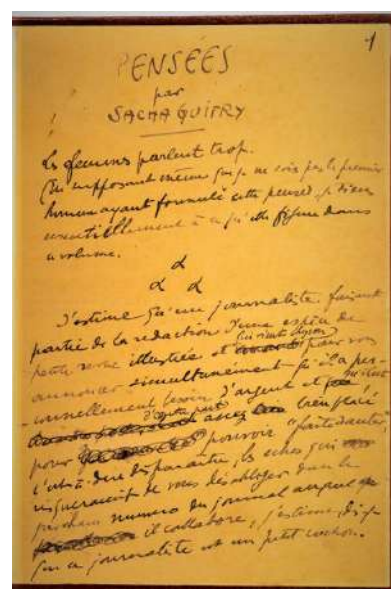 1
PENSÉES
par
SACHA GUITRY
Les femmes parlent trop.
En supposant même que je ne sois pas le premier
homme ayant formulé cette pensée, je tiens
essentiellement à ce qu'elle figure dans
ce volume.
α
α α
J'estime qu'un journaliste faisant
partie de la rédaction d'une espèce de
petite revue illustrée et pour vous
annoncer simultanément qu'il a per-
sonnellement besoin d'argent et qu'il est
d'autre part assez bien placé
pour pouvoir "faire sauter",
c'est-à-dire disparaître, les échos qui
risqueraient de vous désobliger dans le
prochain numéro du journal auquel
il collabore, j'estime, dis-je
que ce journaliste est un petit cochon.